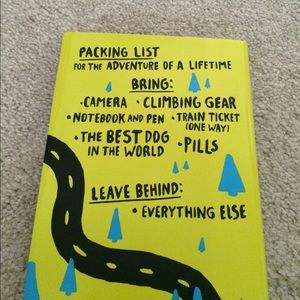 PACKING LIST
FOR THE ADVENTURE OF A LIFETIME
BRING:
•CAMERA •CLIMBING GEAR
•NOTEBOOK AND PEN •TRAIN TICKET
(ONE WAY)
•THE BEST DOG
IN THE WORLD •PILLS
LEAVE BEHIND:
•EVERYTHING ELSE